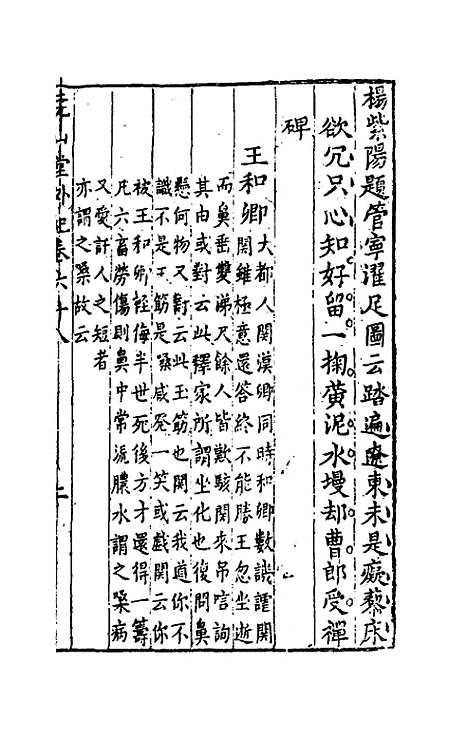 楊紫陽題管寧濯足圖云踏遍遼東未是癡藜床
欲冗只心知好留一掬黃泥水墁却曹郎受禪
碑
王和卿大都人関漢卿同時和卿數譏謔関
関雖極意還答終不能勝王忽坐逝
而鼻垂雙涕尺餘人皆歎駭関來吊唁詢
其由或對云此釋家所謂坐化也復問鼻
懸何物又對云此玉筯也関云我道你不
識不是玉筯是嗓咸發一笑或戲関云你
被王和卿輕侮半世死後方才還得一籌
凡六畜勞傷則鼻中常流膿水謂之嗓病
又愛訐人之短者
亦謂之嗓故云
堯山堂外紀卷六十八